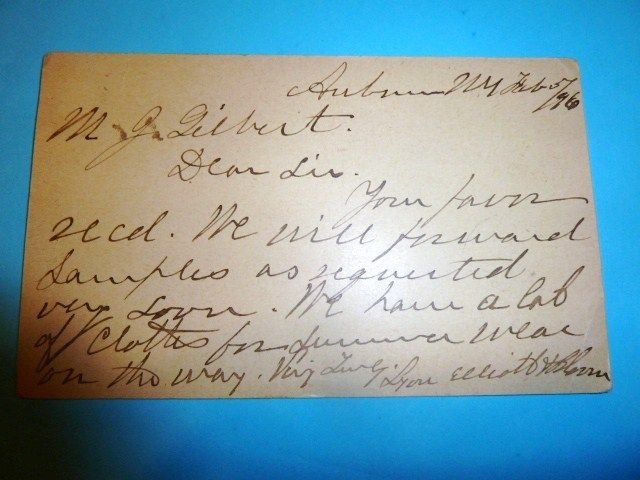 Auburn NY Feb 5/96
M J Gilbert.
Dear Sir.
Your favor
recd. We will forward
samples as requested
very soon. We have a lot
of Cloths for summer wear
on the way. Lyon Elliott &